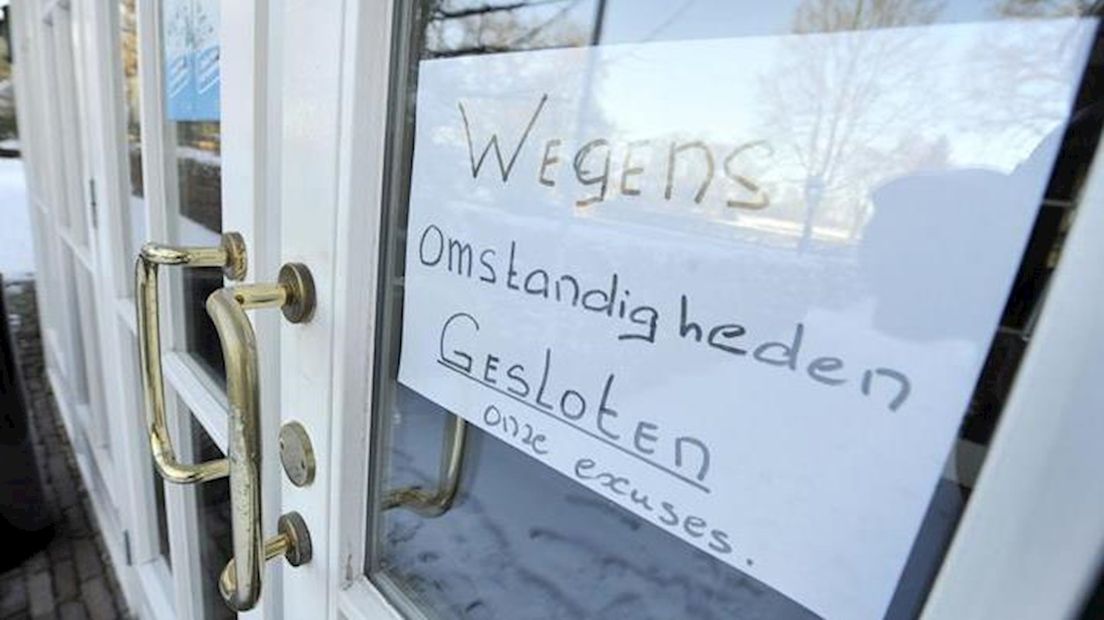 Wegens
omstandigheden
Gesloten
onze excuses.